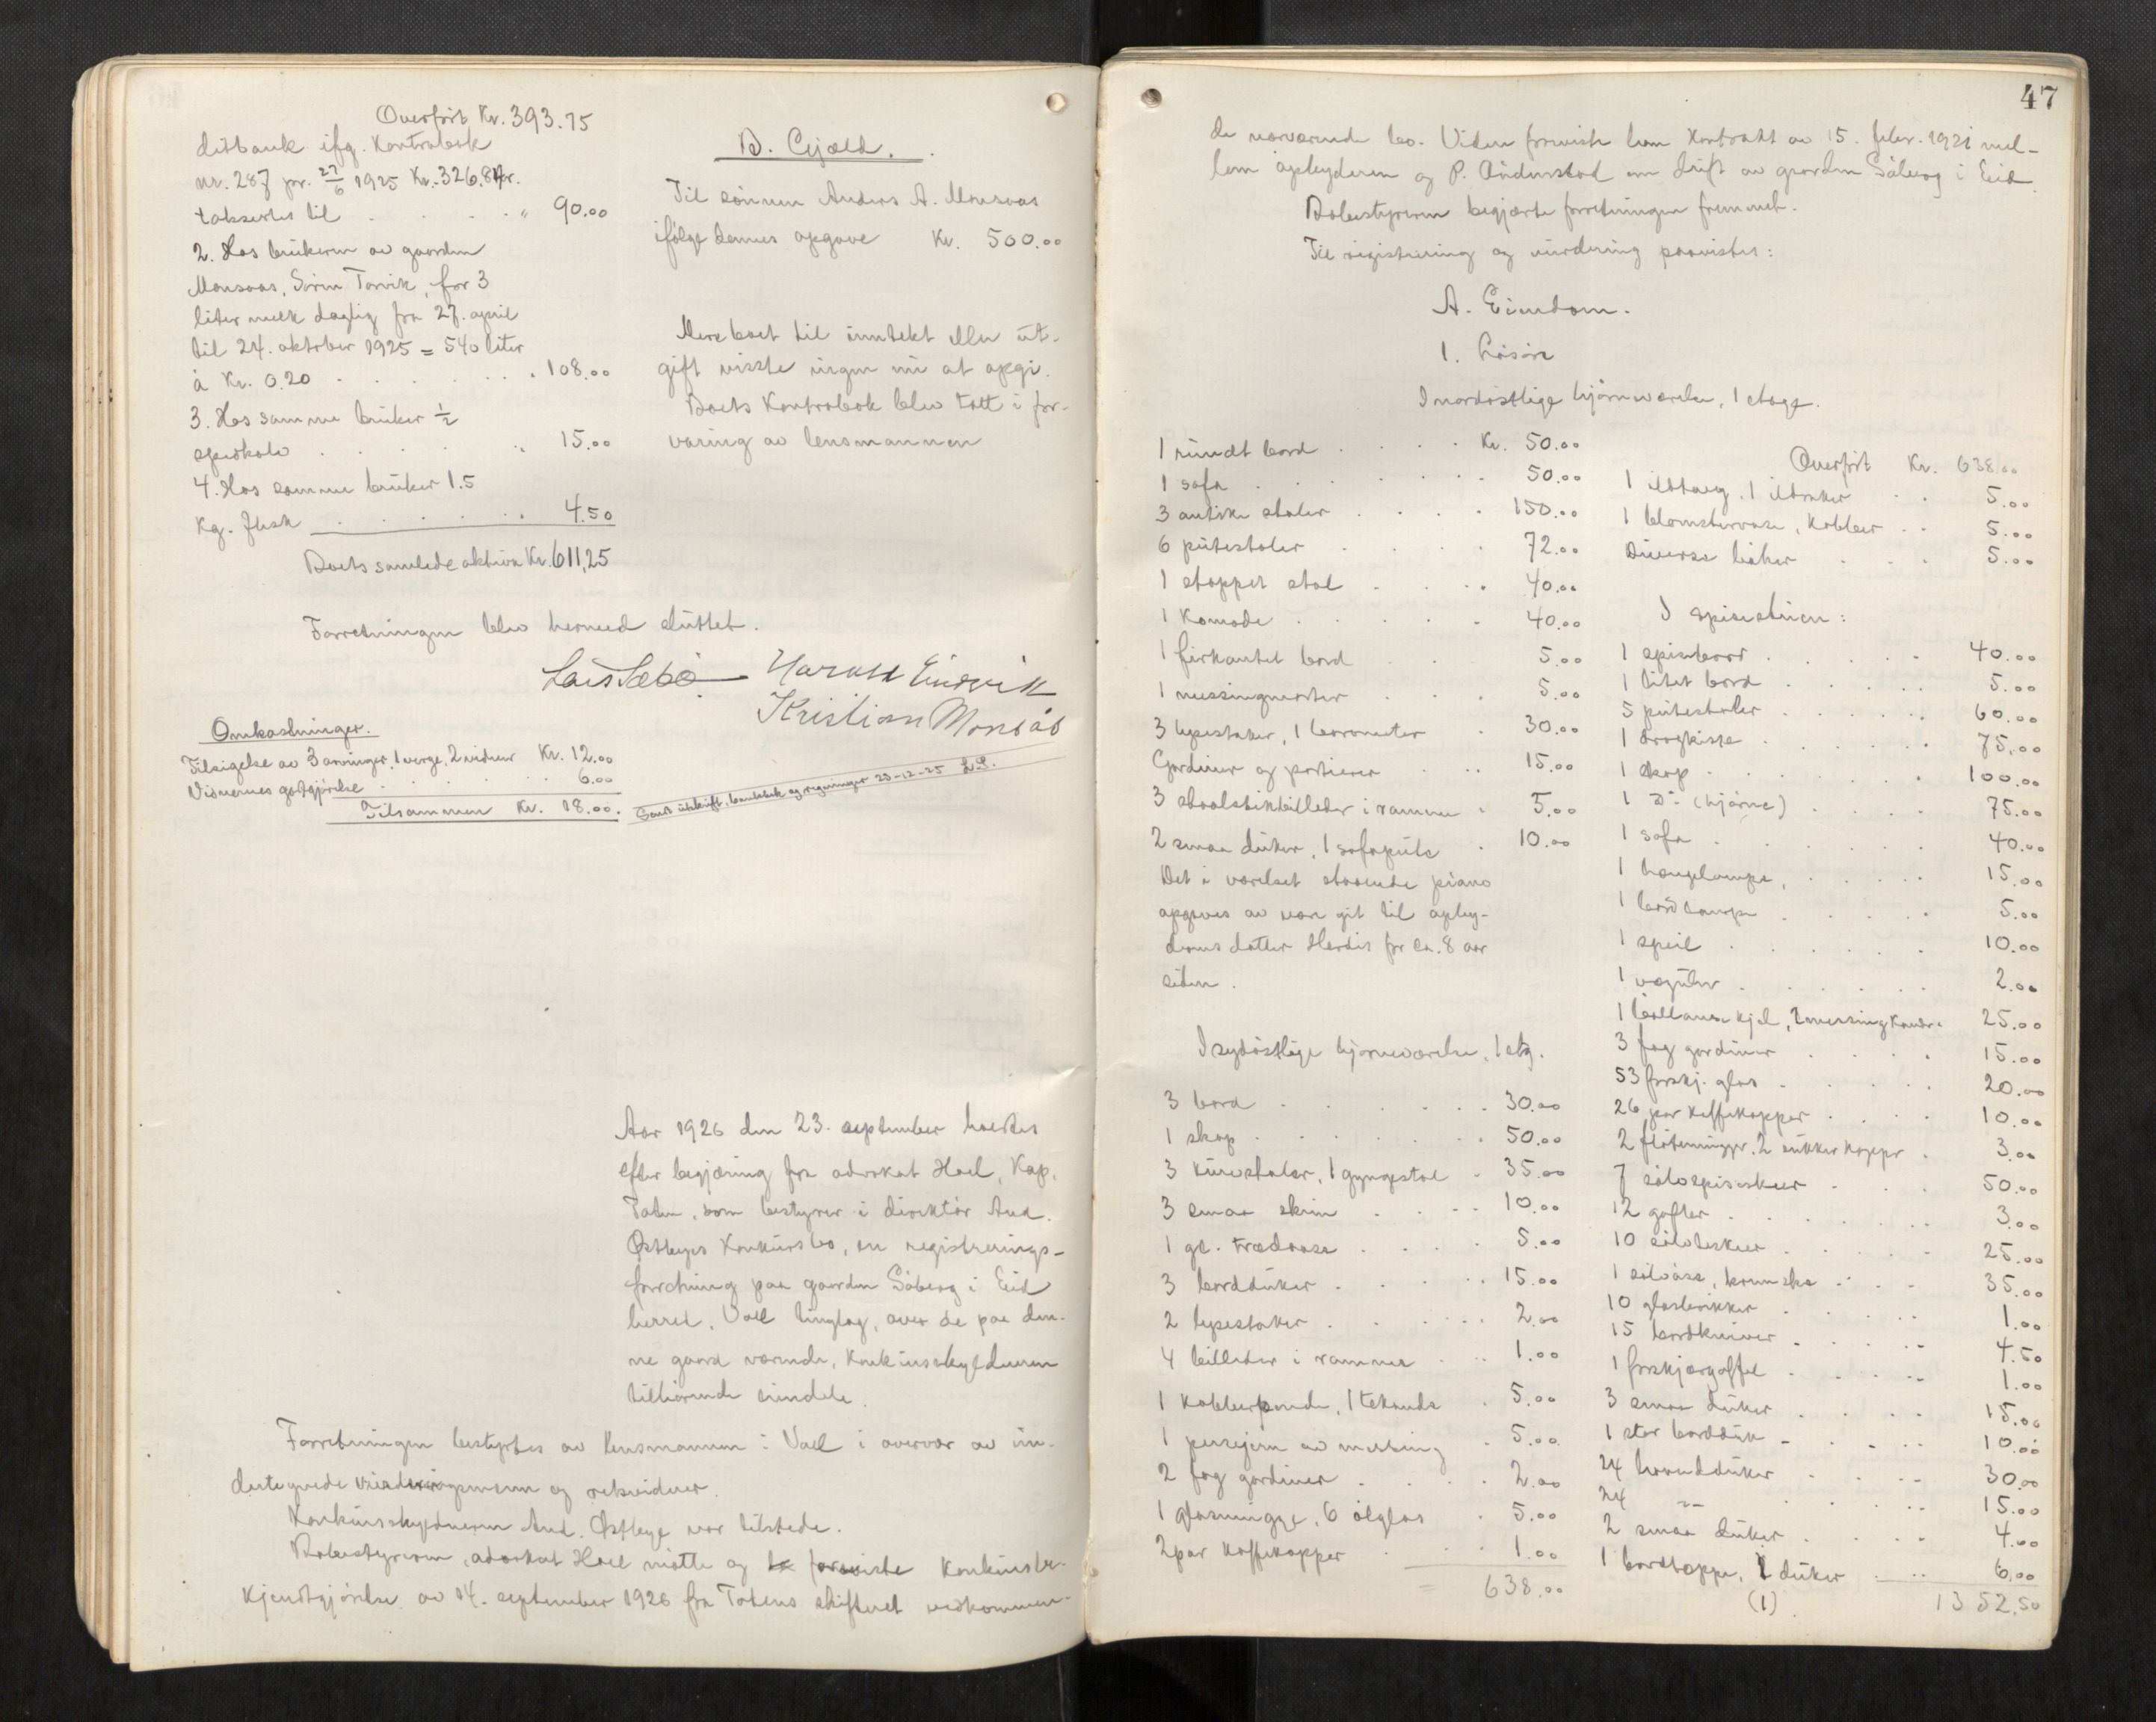 Overført Kr. 393.75
ditbank ifg. Kontrabok
nr. 287 pr. 27/6 1925 Kr. 326.84
takseres til . . . . " 90.00
2. Hos brukeren av gaarden
Monsaas, Søren Torvik, for 3
liter melk daglig fra 27. april
til 24. oktober 1925 = 540 liter
à Kr. 0.20 . . . . . . 108.00
3. Hos samme bruker ½
spekalv . . . . . " 15.00
4. Hos samme bruker 1.5
Kg. flesk . . . . . . 4.50
Boets samlede aktiva Kr. 611,25
B. Gjæld.
Til sønnen Anders A. Monsaas
ifølge dennes opgave Kr. 500.00
Mere boet til inntekt eller ut-
gift visste ingen nu at opgi.
Boets Kontrabok blev tatt i for-
varing av lensmannen
Forretningen blev hermed sluttet.
Lars Sæbø Harald Eidsvik
Kristian Monsås
Omkostninger.
Tilsigelse av 3 arvinger, 1 verge, 2 vidner Kr. 12.00
Vidnernes godtgjørelse . . . . . 6.00
Tilsammen Kr. 18.00.
Sendt utskrift, bankbok og regninger 23-12-25 L.S.
Aar 1926 den 23. september holdtes
efter begjæring fra advokat Hoel, Kap,
Toten, som bestyrer i direktør And.
Østbyes Konkursbo, en registrerings-
forretning paa gaarden Såberg i Eid
herred, Voll tinglag, over de paa den-
ne gaard værende, Konkursskyldneren
tilhørende eiendele.
Forretningen bestyrtes av lensmannen i Voll i overvær av un-
dertegnede vurderingsmenn og rekvidner.
Konkursskyldneren And. Østbye var tilstede.
Bobestyreren, advokat Hoel møtte og foreviste Konkursbe-
kjendtgjørelse av 14. september 1926 fra Totens skifteret vedkommen-
47
de nærværende bo. Videre foreviste han Kontrakt av 15. febr. 1921 mel-
lem opbyderen og P. Andenstad om drift av gaarden Såberg i Eid.
Bobestyreren begjærte forretningen fremmet.
Til registrering og vurdering paavistes:
A. Eiendom.
1. Løsøre
I nordøstlige hjørneværelse, 1 etage.
1 rundt bord . . . . Kr. 50.00
1 sofa . . . . . . . 50.00
3 antike stoler . . . . 150.00
6 putestoler . . . . 72.00
1 stoppet stol . . . . 40.00
1 Komode . . . . . . 40.00
1 firkantet bord . . . 5.00
1 messingmorter . . . 5.00
3 lysestaker, 1 barometer . 30.00
Gardiner og portierer . . . 15.00
3 staalstikbilleder i ramme . 5.00
2 smaa duker, 1 sofapute . 10.00
Det i værelset staaende piano
opgives av være git til opby-
derens datter Herdis for ca. 8 aar
siden.
I sydøstlige hjørneværelse, 1 etg.
3 bord . . . . . . . 30.00
1 skap . . . . . . . 50.00
3 kurvstoler, 1 gyngestol . 35.00
3 smaa skrin . . . . 10.00
1 gl. trædaase . . . . 5.00
3 bordduker . . . . . 15.00
2 lysestaker . . . . . 2.00
4 billeder i rammer . . . 1.00
1 Kobberpande, 1 tekande . 5.00
1 pressejern av messing . 5.00
2 fag gardiner . . . . 2.00
1 glasmugge, 6 ølglas . 5.00
2 par Kaffekopper . . . 1.00
638.00
Overført Kr. 638.00
1 ildtang, 1 ildraker . . 5.00
1 blomstervase, Kobber . . 5.00
Diverse bøker . . . 5.00
I spisestuen:
1 spisebord . . . . . 40.00
1 litet bord . . . . . 5.00
5 putestoler . . . . . 60.00
1 dragkiste . . . . . . 75.00
1 skap . . . . . . . 100.00
1 do (hjørne) . . . . 75.00
1 sofa . . . . . . . 40.00
1 hengelampe, . . . . . 15.00
1 bordlampe . . . . . 5.00
1 speil . . . . . . 10.00
1 vægur . . . . . . 2.00
1 kjel, 2 messing Kander 25.00
3 fag gardiner . . . . 15.00
53 forskj. glas . . . . . 20.00
26 par Kaffekopper . . . . 10.00
2 fløtemugger, 2 sukker Kopper . 3.00
7 sølvspiseskeer . . . 50.00
12 gafler . . . . . . . 3.00
10 sølvteskeer . . . . . 25.00
1 sølvøse, . . . 35.00
10 glasbrikker . . . . . 1.00
15 bordkniver . . . . . 4.50
1 forskjærgaffel . . . . 1.00
3 smaa duker . . . . 15.00
1 stor bordduk . . . . 10.00
24 haandduker . . . . 30.00
24 -"- . . . . . 15.00
2 smaa duker . . . . 4.00
1 bordteppe, 1 duker . . . 6.00
(1) 1352.50